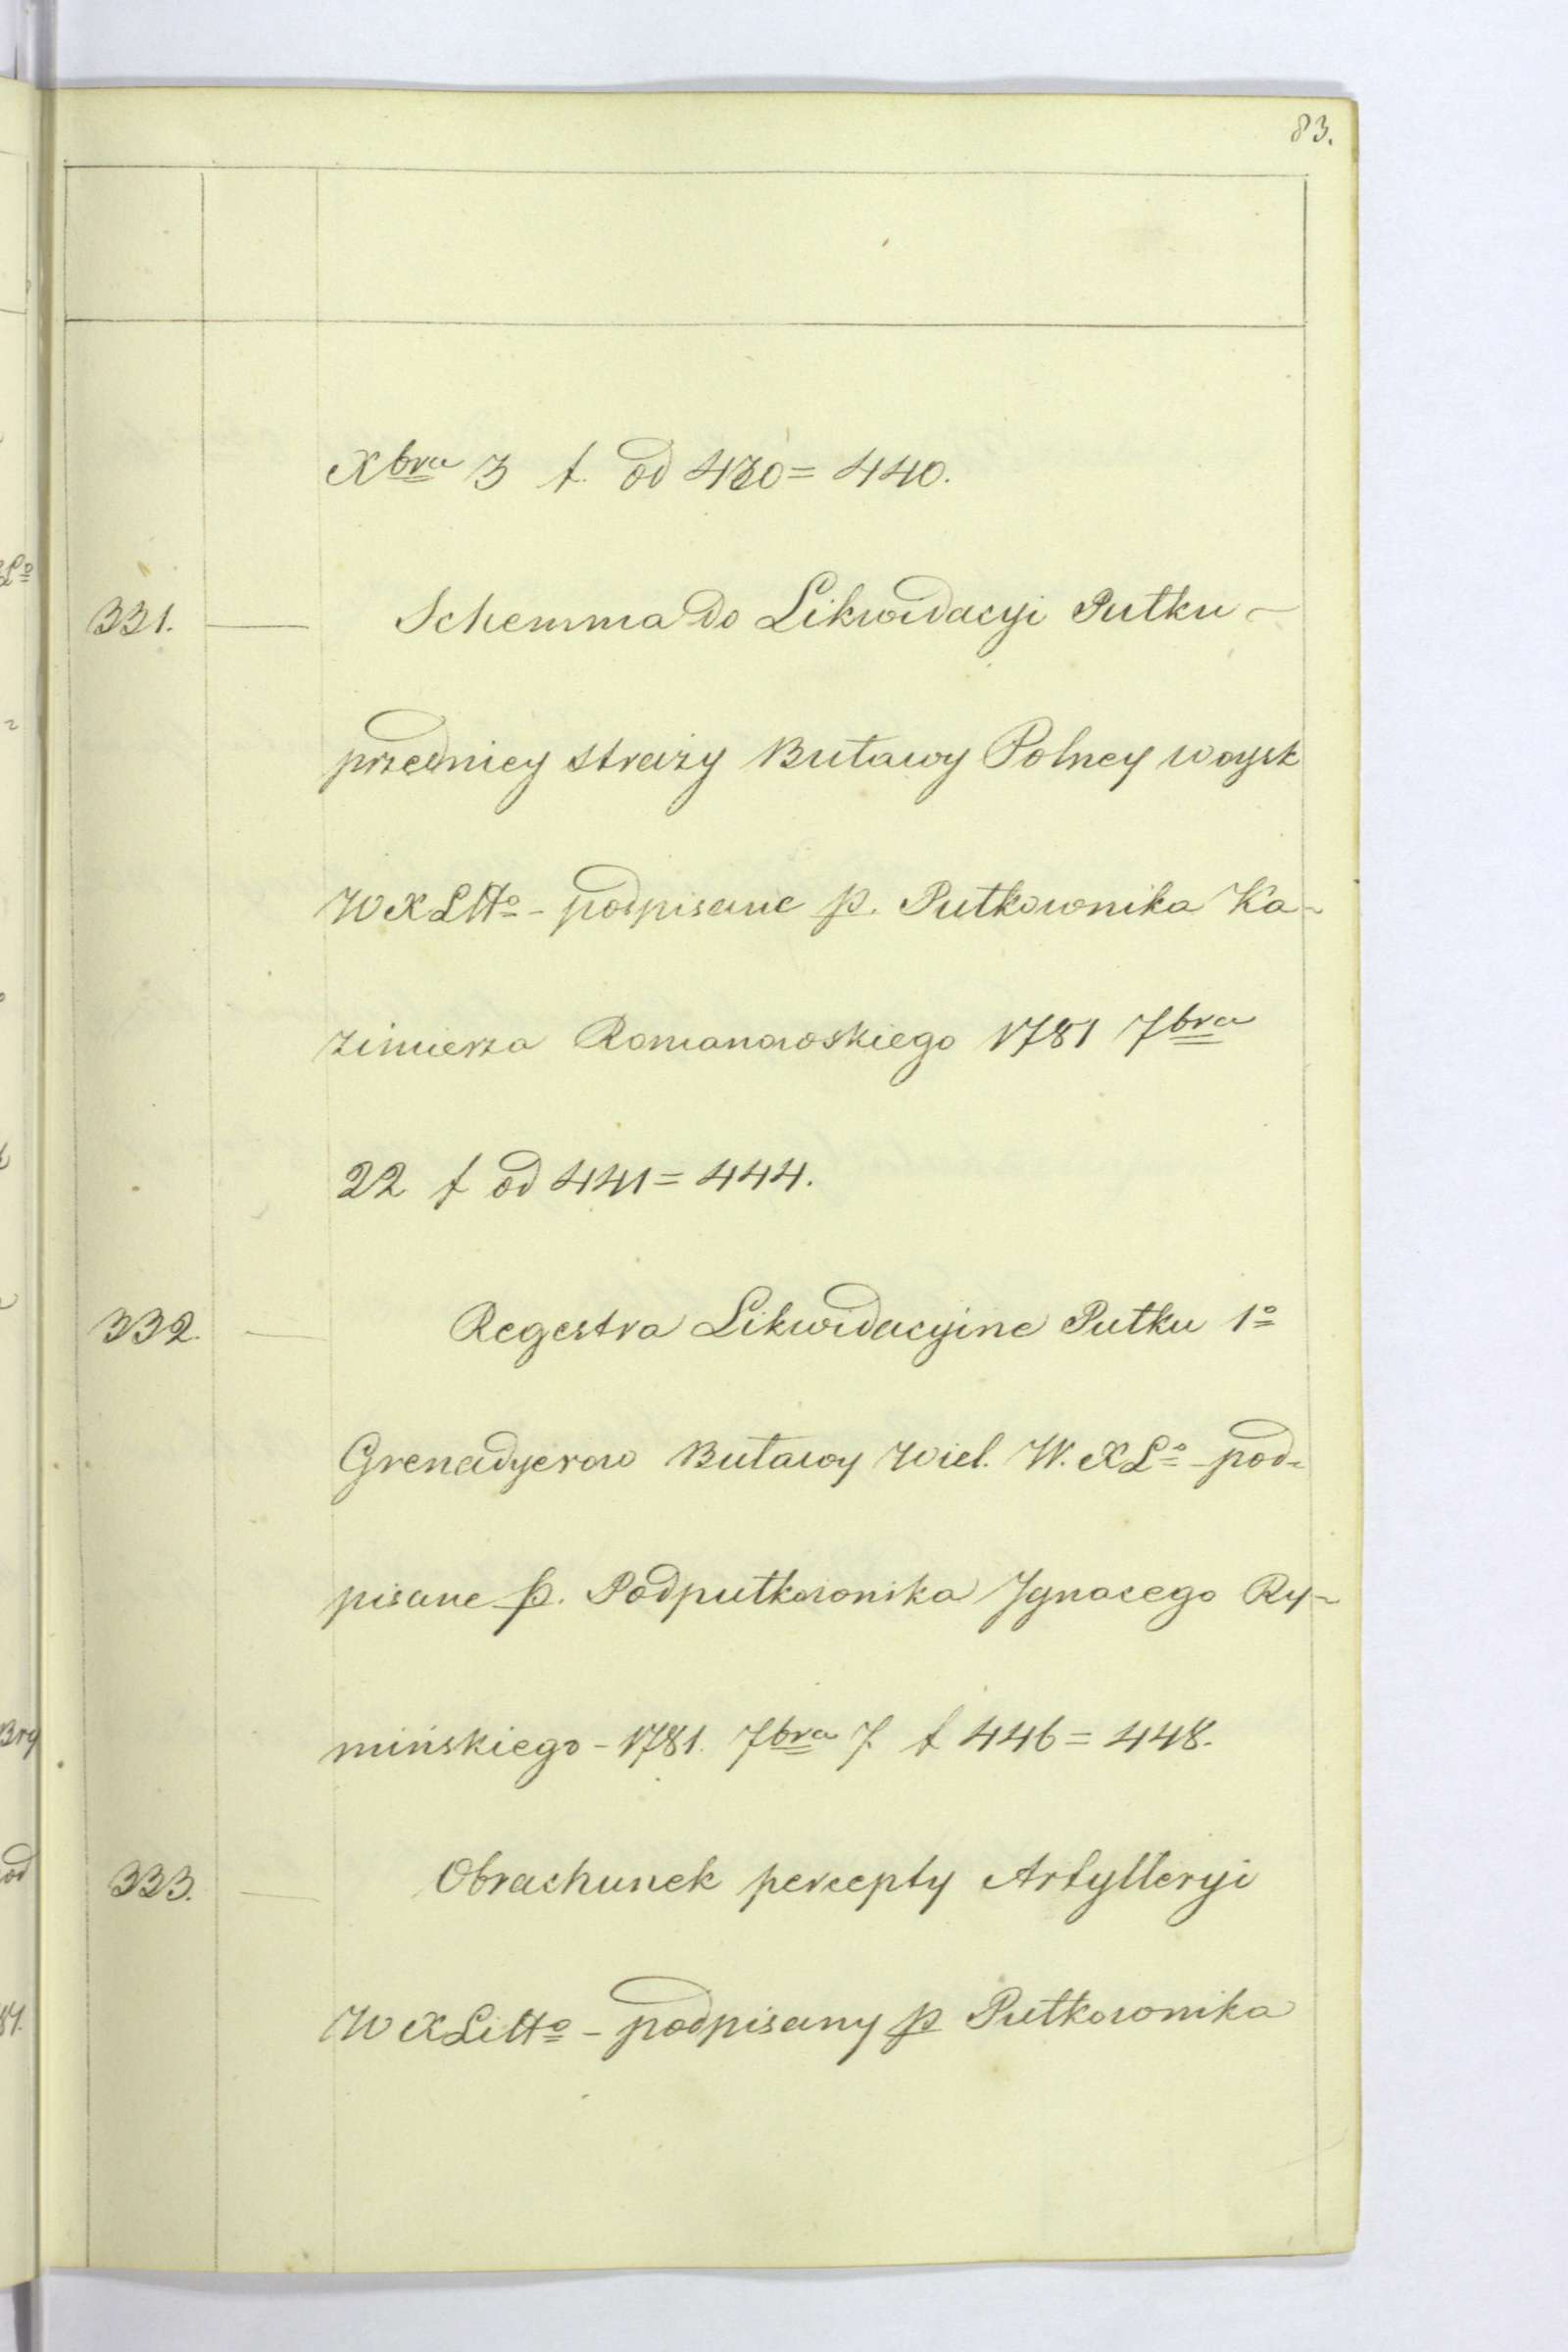 83.
Xbra 3 f. od 430 = 440.
331. — Schemma do Likwidacyi Pułku -
przedniey straży Buławy Polney woysk
W X Litto - podpisane p. Pułkownika Ka-
zimierza Romanowskiego 1781 7bra
22 f od 441 = 444.
332 — Regestra Likwidacyine Pułku 1o
Grenadyerow Buławy Wiel. W. X Lo - pod-
pisane p. Podpułkownika Ignacego Ry-
mińskiego - 1781. 7bra 7. f 446 = 448.
333. — Obrachunek percepty Artylleryi
W X Litto - podpisany p Pułkownika